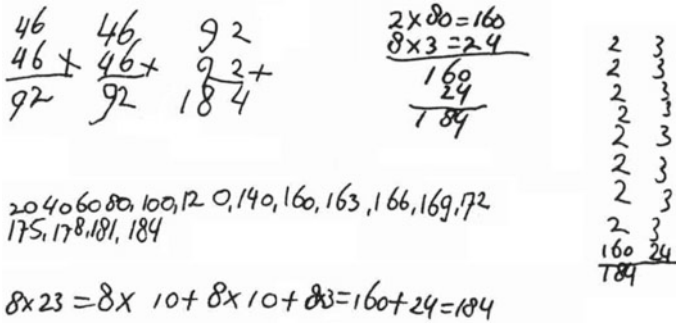 46 46 92
46 + 46 + 92 +
92 92 184
2 x 80 = 160
8 x 3 = 24
160
24
184
2 3
2 3
2 3
2 3
2 3
2 3
2 3
2 3
160 24
184
20 40 60 80, 100, 12 0, 140, 160, 163, 166, 169, 172
175, 178, 181, 184
8x23 = 8x 10 + 8x10 + 8x3 = 160 + 24 = 184